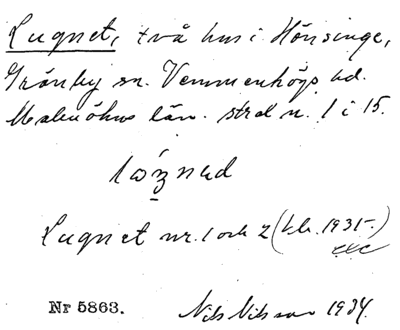 Lugnet, två hus i Hönsinge,
Grönby sn. Vemmenhögs hd.
Malmöhus län. strax n. 1 i 15.
Lugnet nr. 1 och 2 (bl. 1935.)
Nr 5863. Nils Nilsson 1934.